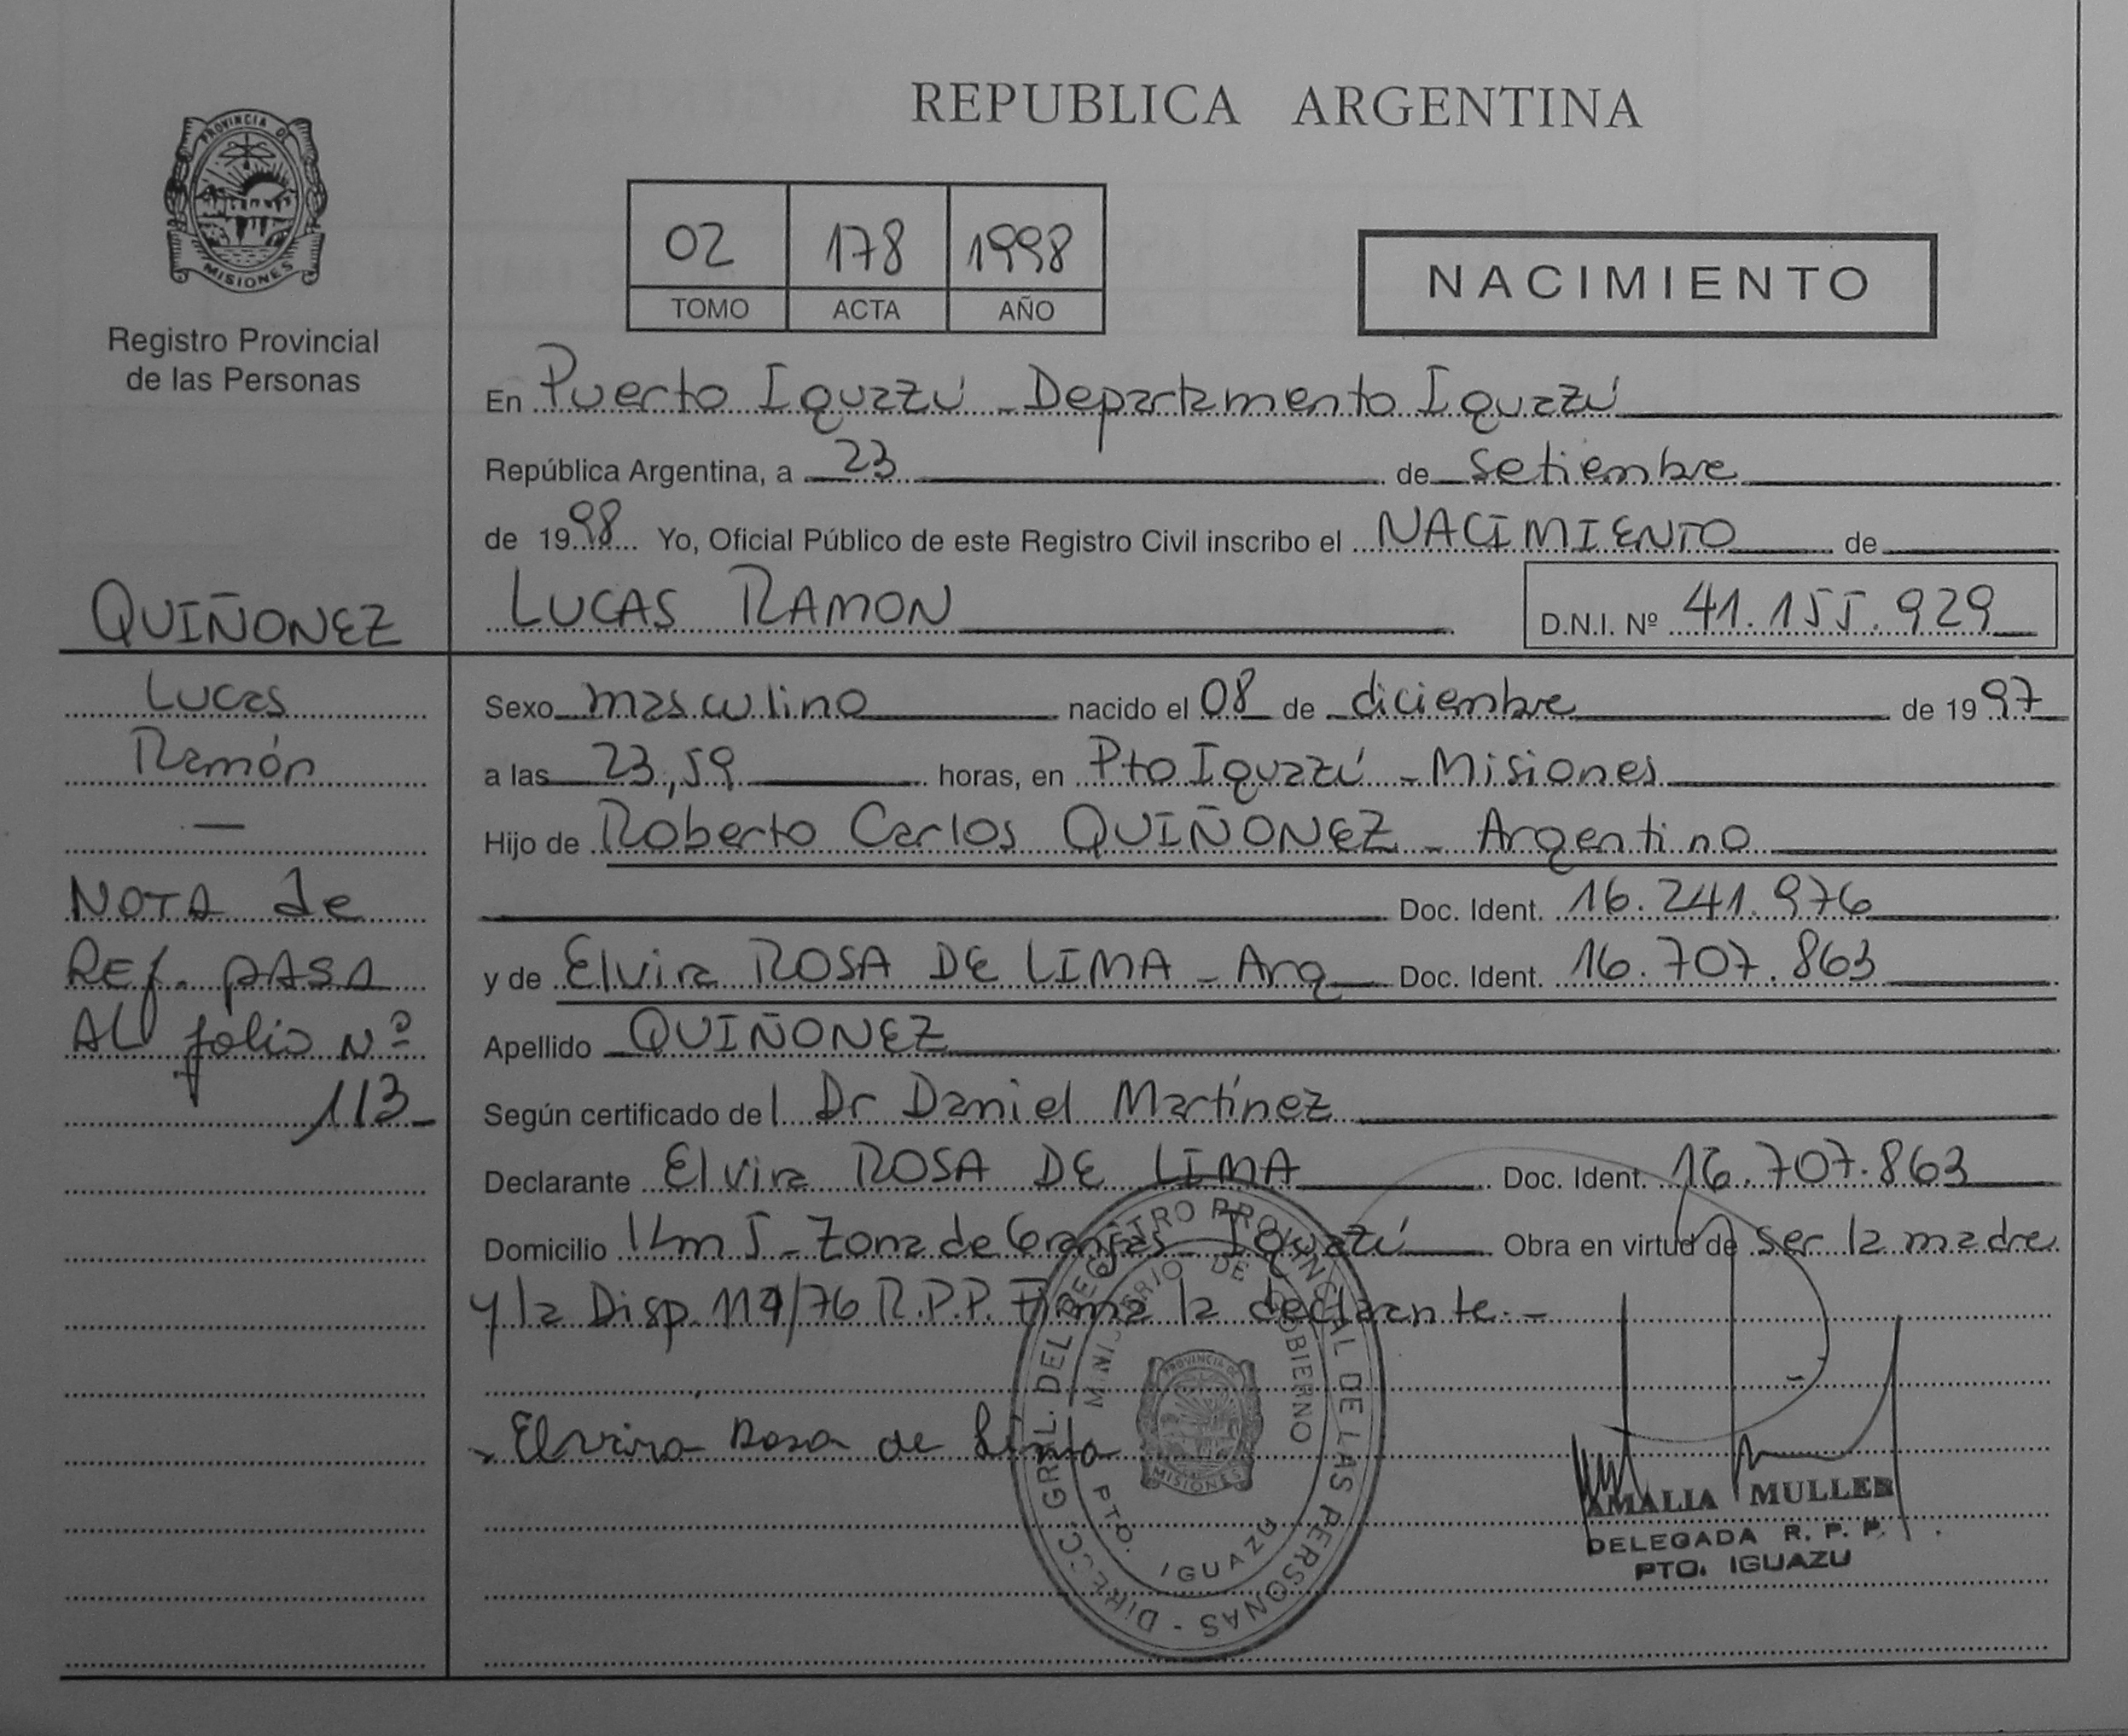 REPUBLICA ARGENTINA
PROVINCIA DE
MISIONES
Registro Provincial
de las Personas
02 178 1998
TOMO ACTA AÑO
NACIMIENTO
En Puerto Iguazú - Departamento Iguazú
República Argentina, a 23 de Setiembre
de 1998 Yo, Oficial Público de este Registro Civil inscribo el NACIMIENTO de
LUCAS RAMON D.N.I. Nº 41.155.929
QUIÑONEZ
Lucas
Ramón
—
NOTA de
REf. pASA
AL folio Nº
113-
Sexo masculino nacido el 08 de diciembre de 1997
a las 23,59 horas, en Pto Iguazú - Misiones
Hijo de Roberto Carlos QUIÑONEZ - Argentino
Doc. Ident. 16.241.976
y de Elvira ROSA DE LIMA - Arg Doc. Ident. 16.707.863
Apellido QUIÑONEZ
Según certificado del Dr Daniel Martínez
Declarante Elvira ROSA DE LIMA Doc. Ident. 16.707.863
Domicilio Km 5 - Zona de Granjas - Iguazú Obra en virtud de ser la madre
y la Disp. /76 R.P.P. Firma la declarante.-
Elvira Rosa de Lima
DIRECC. GRAL. DEL REGISTRO PROVINCIAL DE LAS PERSONAS -
MINISTERIO DE GOBIERNO
PROVINCIA DE
MISIONES
PTO. IGUAZU
AMALIA MULLER
DELEGADA R. P. P.
PTO. IGUAZU